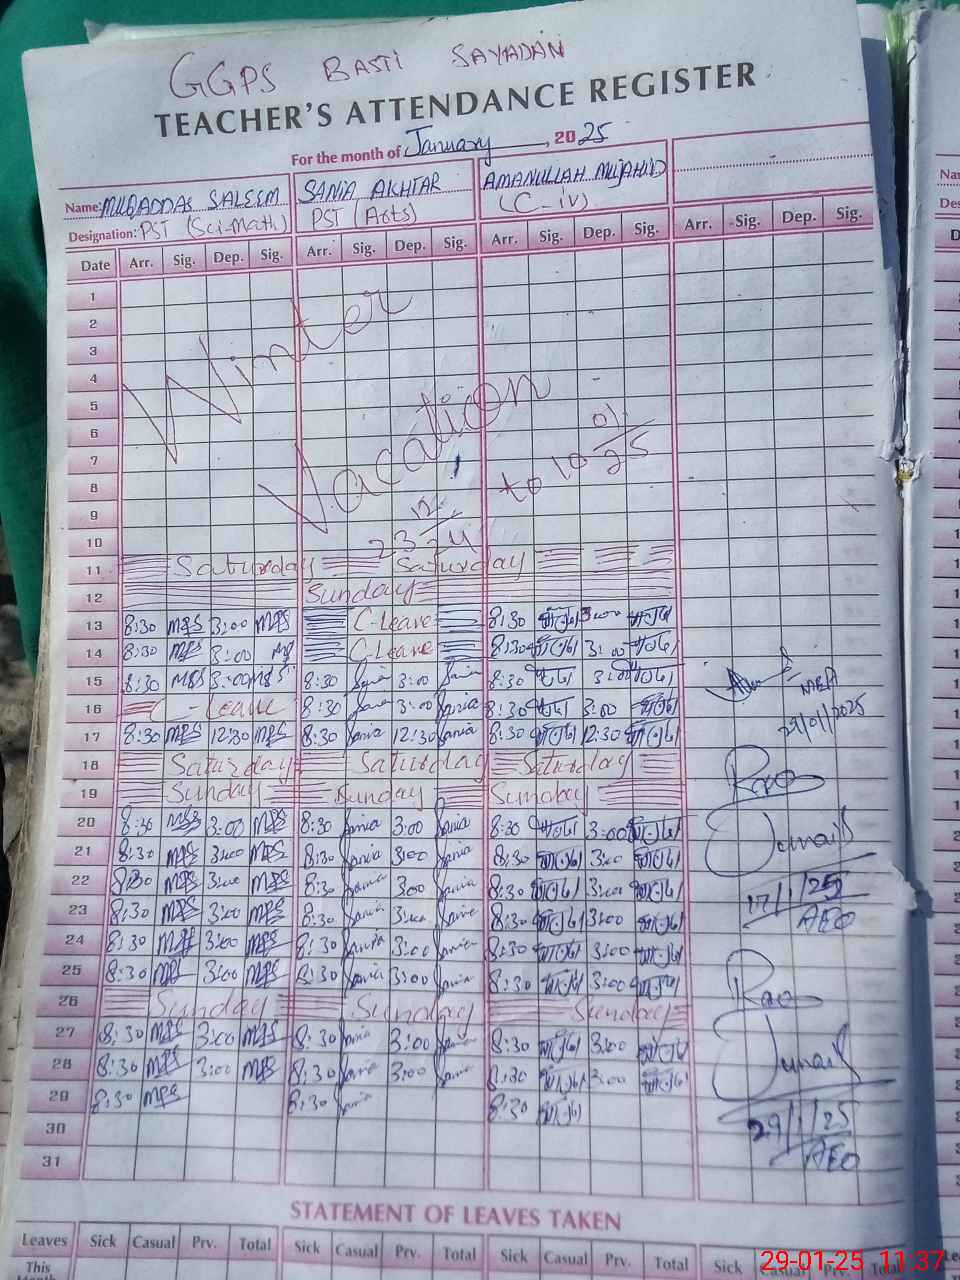 GGPS BASTI SAYADAN
TEACHER'S ATTENDANCE REGISTER
For the month of January, 2025
Name: MUQADDAS SALEEM SANIA AKHTAR AMANULLAH MUJAHID
Designation: PST (Sci-Math) PST (Arts) (C-IV)
Date Arr. Sig. Dep. Sig. Arr. Sig. Dep. Sig. Arr. Sig. Dep. Sig. Arr. Sig. Dep. Sig.
1
2
3
4
5
6
7
8
9
10
Winter
Vacation
23 12/24 to 10 01/25
11 Saturday Saturday
12 Sunday
13 8:30 MPS 3:00 MPS C-Leave 8:30 3:00
14 8:30 MPS 3:00 C-Leave 8:30 3:00
15 8:30 MPS 3:00 MPS 8:30 Sania 3:00 Sania 8:30 3:00
16 C-Leave 8:30 Sania 3:00 Sania 8:30 3:00
17 8:30 MPS 12:30 MPS 8:30 Sania 12:30 Sania 8:30 12:30
18 Saturday Saturday Saturday
19 Sunday Sunday Sunday
20 8:30 MPS 3:00 MPS 8:30 Sania 3:00 Sania 8:30 3:00
21 8:30 MPS 3:00 MPS 8:30 Sania 3:00 Sania 8:30 3:00
22 8:30 MPS 3:00 MPS 8:30 Sania 3:00 Sania 8:30 3:00
23 8:30 MPS 3:00 MPS 8:30 Sania 3:00 Sania 8:30 3:00
24 8:30 MPS 3:00 MPS 8:30 Sania 3:00 Sania 8:30 3:00
25 8:30 MPS 3:00 MPS 8:30 Sania 3:00 Sania 8:30 3:00
26 Sunday Sunday Sunday
27 8:30 MPS 3:00 MPS 8:30 Sania 3:00 Sania 8:30 3:00
28 8:30 MPS 3:00 MPS 8:30 Sania 3:00 Sania 8:30 3:00
29 8:30 MPS 8:30 Sania 8:30
30
31
MEA
29/01/2025
Rao
Junaid
17/1/25
AEO
Rao
Junaid
29/1/25
AEO
STATEMENT OF LEAVES TAKEN
Leaves Sick Casual Prv. Total Sick Casual Prv. Total Sick Casual Prv. Total Sick Casual Prv. Total
This
Month
29-01-25 11:37